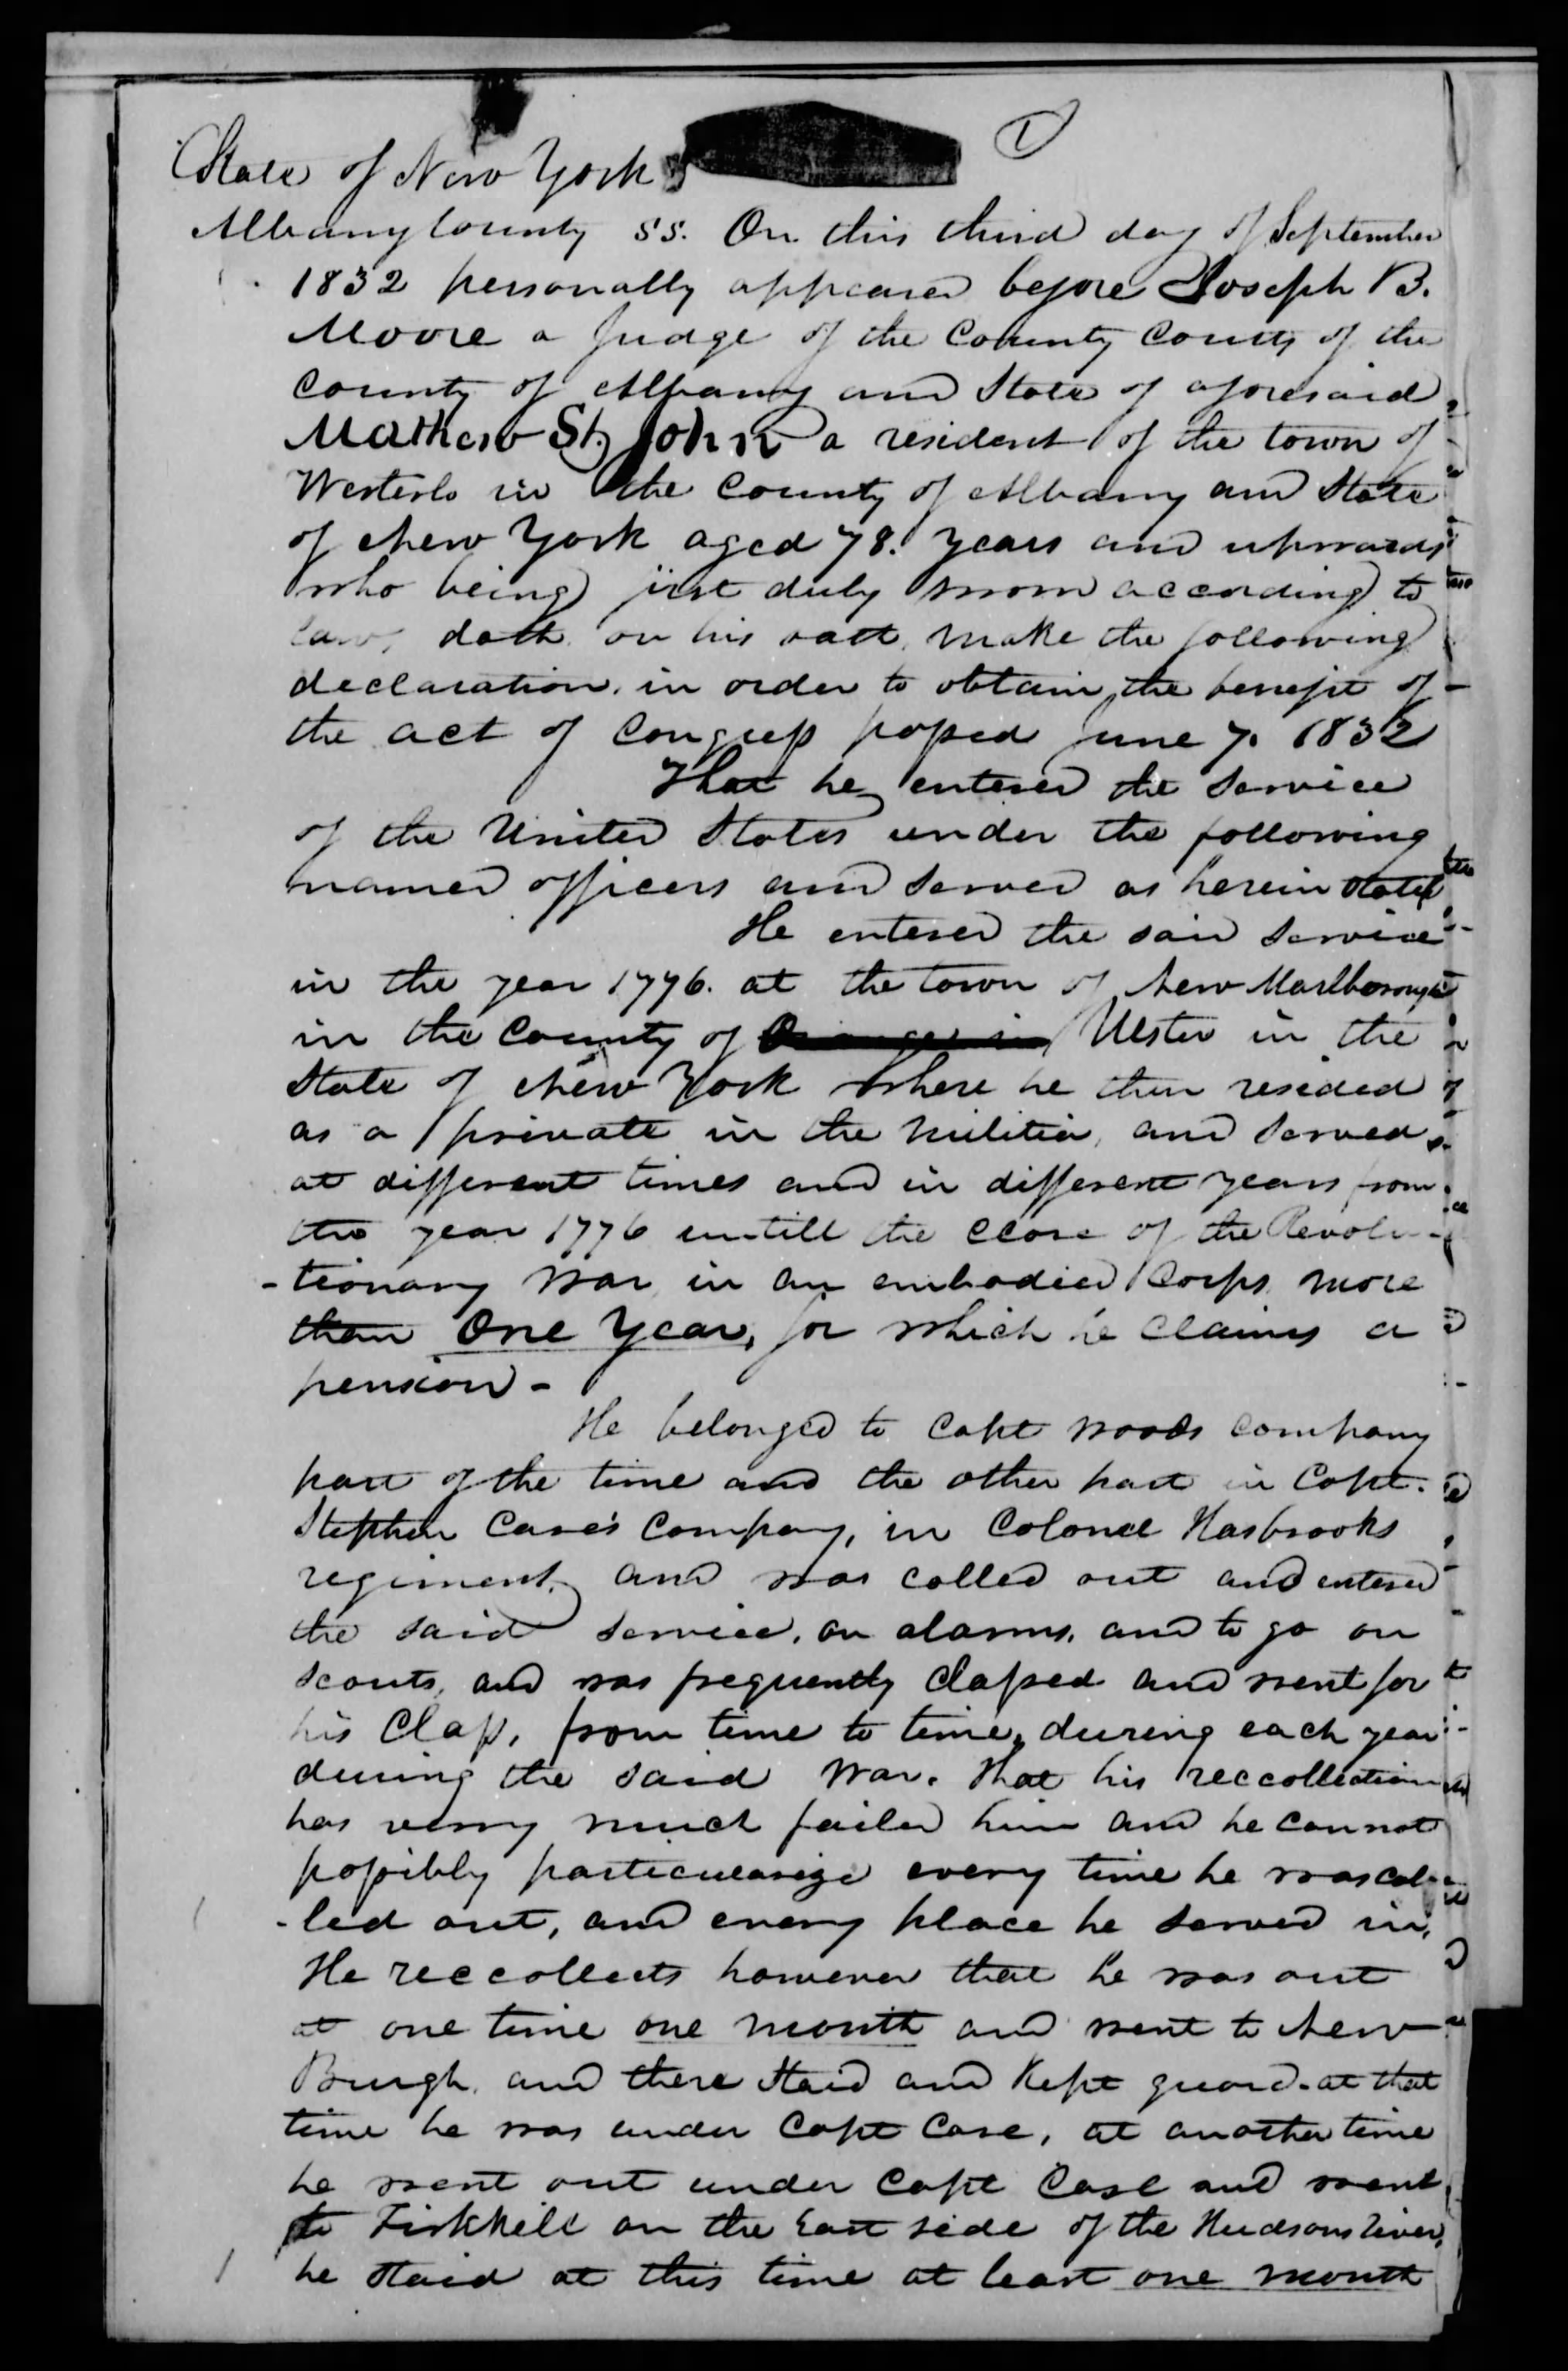 1
State of New York
Albany County SS. On this third day of September
1832 personally appeared before Joseph B.
Moore a Judge of the County Courts of the
County of Albany and State of aforesaid
Mathew St. John a resident of the town of
Westerlo in the County of Albany and State
of New York aged 78. years and upwards
who being first duly sworn according to
law, doth on his oath, make the following
declaration in order to obtain the benefit of
the act of Congress passed June 7. 1832
That he entered the service
of the United States under the following
named officers and served as herein stated
He entered the said service
in the year 1776. at the town of New Marlborough
in the County of Ulster in the
State of New York where he then resided
as a private in the militia, and served
at different times and in different years from
the year 1776 untill the close of the Revolu-
-tionary War in an embodied Corps more
than One Year, for which he claims a
pension -
He belonged to Capt Woods Company
part of the time and the other part in Capt.
Stephen Case's Company, in Colonel Hasbrooks
regiment, and was called out and entered
the said service, on alarms, and to go on
scouts, and was frequently Classed and went for
his Class, from time to time, during each year
during the said War. That his reccollection
has verry much failed him and he cannot
possibly particularize every time he was cal-
-led out, and every place he served in,
He reccollects however that he was out
at one time one month and went to New
Burgh, and there staid and kept guard. at that
time he was under Capt Case, at another time
he went out under Capt Case and went
to Fishkill on the East side of the Hudsons River,
he staid at this time at least one month